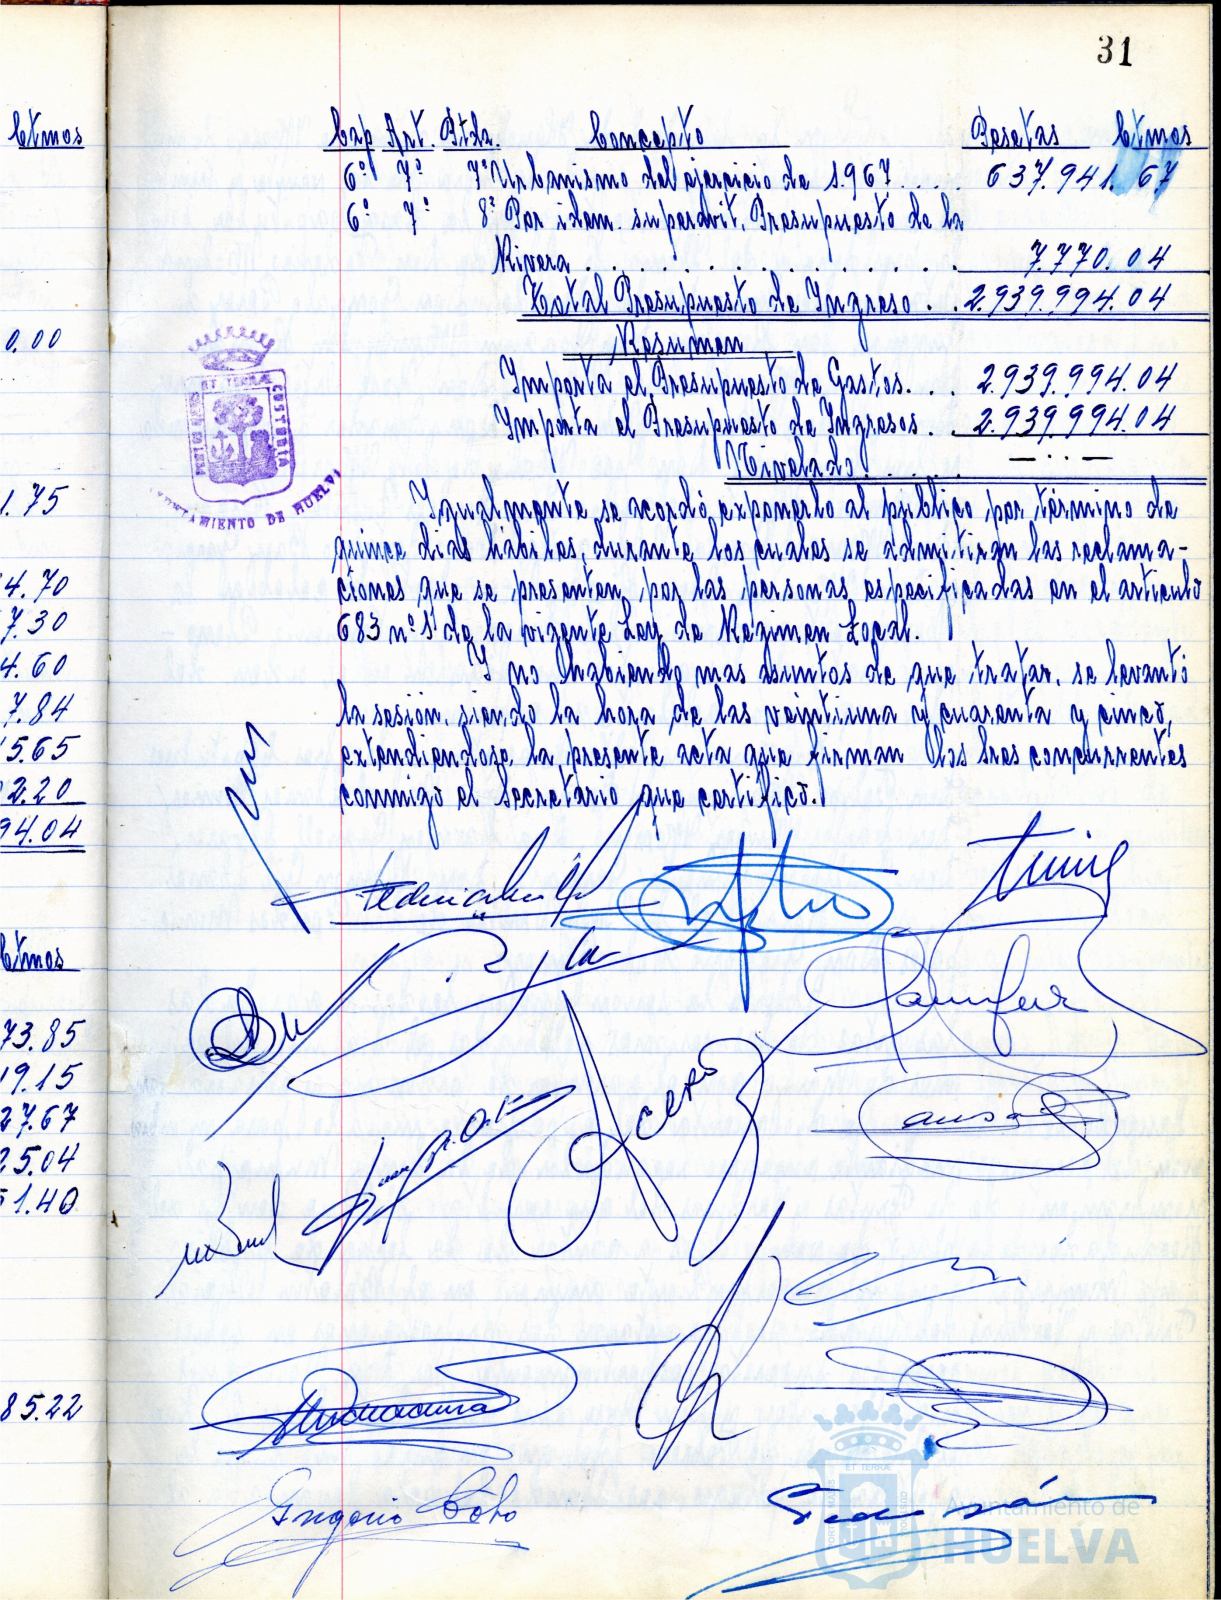 31
Ctmos
0.00
1.75
4.70
7.30
4.60
7.84
5.65
2.20
94.04
Ctmos
73.85
19.15
27.67
25.04
51.40
85.22
Cap Art. Ptda. Concepto Pesetas Ctmos
6º 7º 7º Urbanismo del ejercicio de 1.967 .... 637.941.67
6º 7º 8º Por idem. superavit, Presupuesto de la
Rivera . . . . . . . . . . . . . . 7.770.04
Total Presupuesto de Ingreso . . 2.939.994.04
Resumen
Importa el Presupuesto de Gastos. . . 2.939.994.04
Importa el Presupuesto de Ingresos . . 2.939.994.04
Nivelado . . . . . — .. —
Igualmente se acordó exponerlo al público por término de
quince dias hábiles, durante los cuales se admitirán las reclama-
ciones que se presenten por las personas especificadas en el articulo
683 nº 1º de la vigente Ley de Regimen Local.
Y no habiendo mas asuntos de que tratar, se levantó
la sesión, siendo la hora de las veintiuna y cuarenta y cinco,
extendiendose la presente acta que firman los Sres concurrentes
conmigo el Secretario que certifico.
PORTUS MARIS ET TERRAE CUSTODIA
AYUNTAMIENTO DE HUELVA
Acero
Gregorio Cobo
Ayuntamiento de
HUELVA